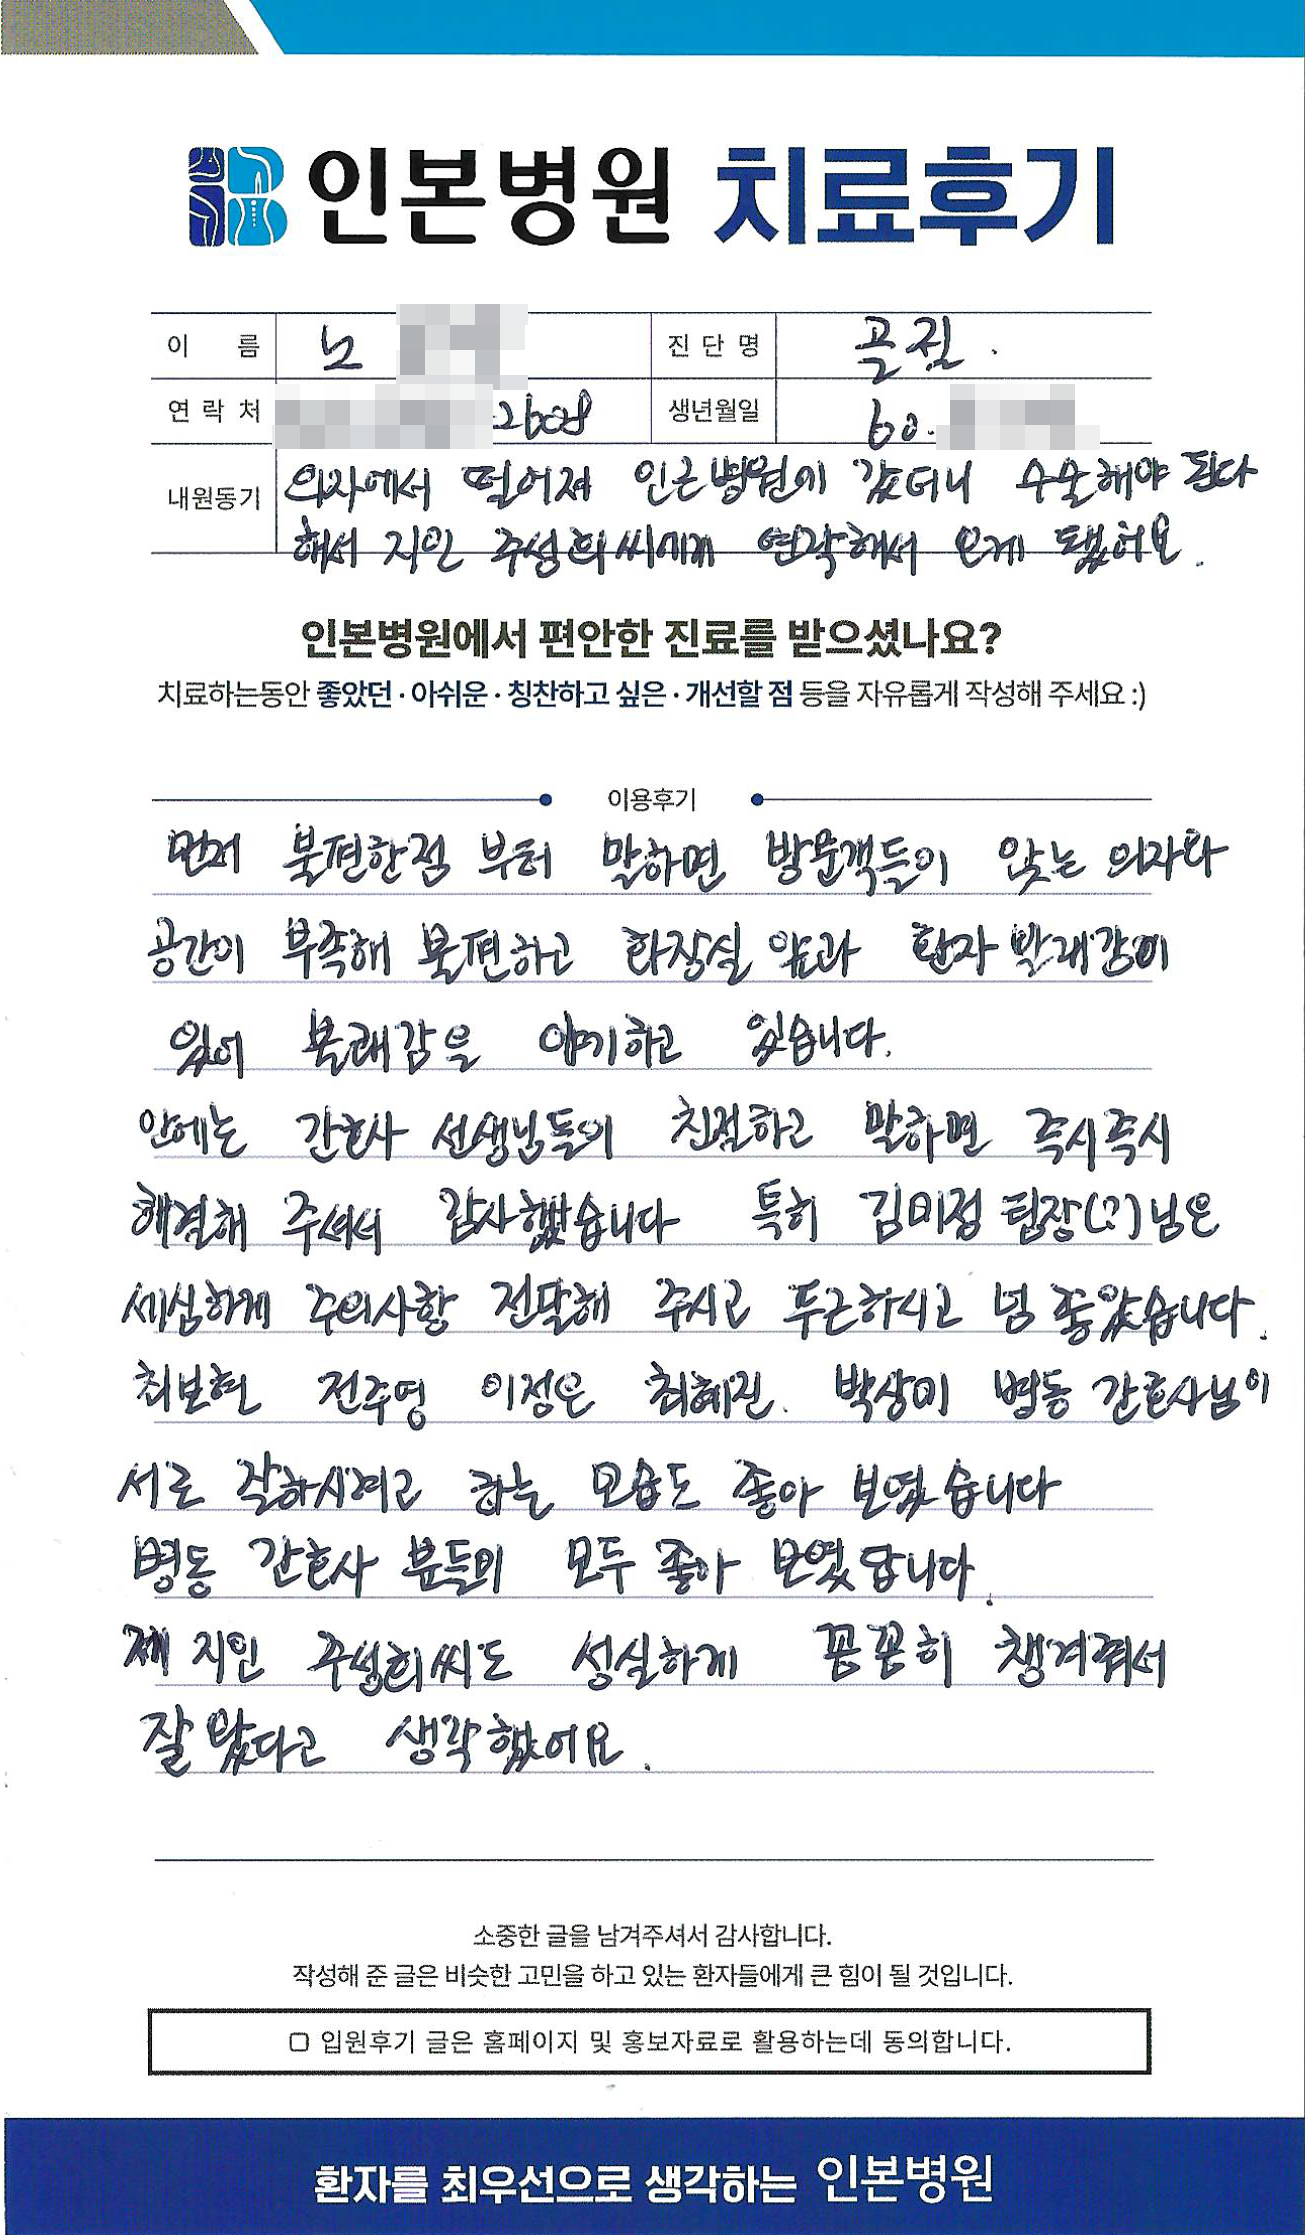 인본병원 치료후기
이 름 노 진 단 명 골절.
연 락 처 2608 생년월일 60.
내원동기 의자에서 떨어져 인근병원에 갔더니 수술해야 된다
해서 지인 주성희씨에게 연락해서 오게 됐어요.
인본병원에서 편안한 진료를 받으셨나요?
치료하는동안 좋았던·아쉬운·칭찬하고 싶은·개선할 점 등을 자유롭게 작성해 주세요 :)
이용후기
먼저 불편한점 부터 말하면 방문객들이 앉는 의자와
공간이 부족해 불편하고 화장실 앞과 환자
있어 불쾌감을 야기하고 있습니다.
안에는 간호사 선생님들이 친절하고 말하면 즉시즉시
해결해 주셔서 감사했습니다 특히 김미정 팀장(?)님은
세심하게 주의사항 전달해 주시고 두근하시고 넘 좋았습니다.
최보현 전주영 이정은 최혜진. 박상미 병동 간호사님이
서로 잘하시려고 하는 모습도 좋아 보였습니다
병동 간호사 분들이 모두 좋아 보였답니다.
제 지인 주성희씨도 성실하게 꼼꼼히 챙겨줘서
잘 왔다고 생각했어요.
소중한 글을 남겨주셔서 감사합니다.
작성해 준 글은 비슷한 고민을 하고 있는 환자들에게 큰 힘이 될 것입니다.
▢ 입원후기 글은 홈페이지 및 홍보자료로 활용하는데 동의합니다.
환자를 최우선으로 생각하는 인본병원